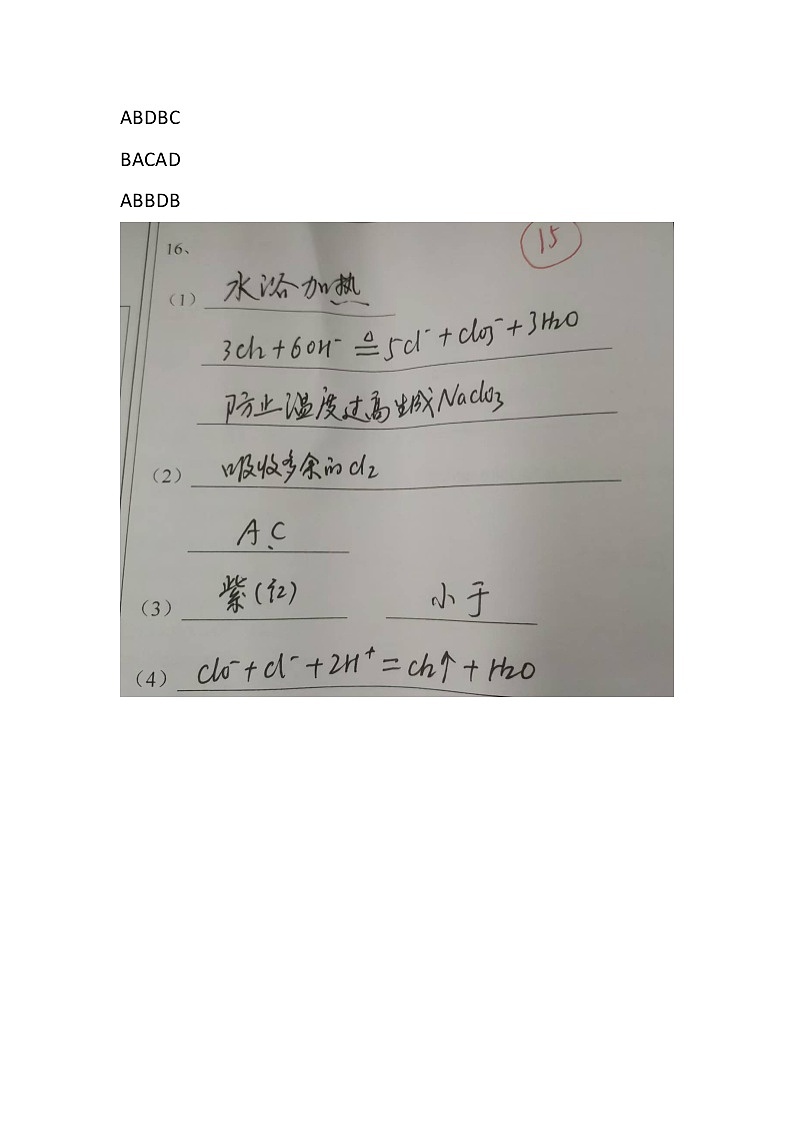 ABDBC
BACAD
ABBDB
16、
15
(1) 水浴加热
3Cl2+6OH⁻ ≜ 5Cl⁻+ClO3⁻+3H2O
防止温度过高生成NaClO3
(2) 吸收多余的Cl2
A C
(3) 紫(红) 小于
(4) ClO⁻+Cl⁻+2H⁺=Cl2↑+H2O